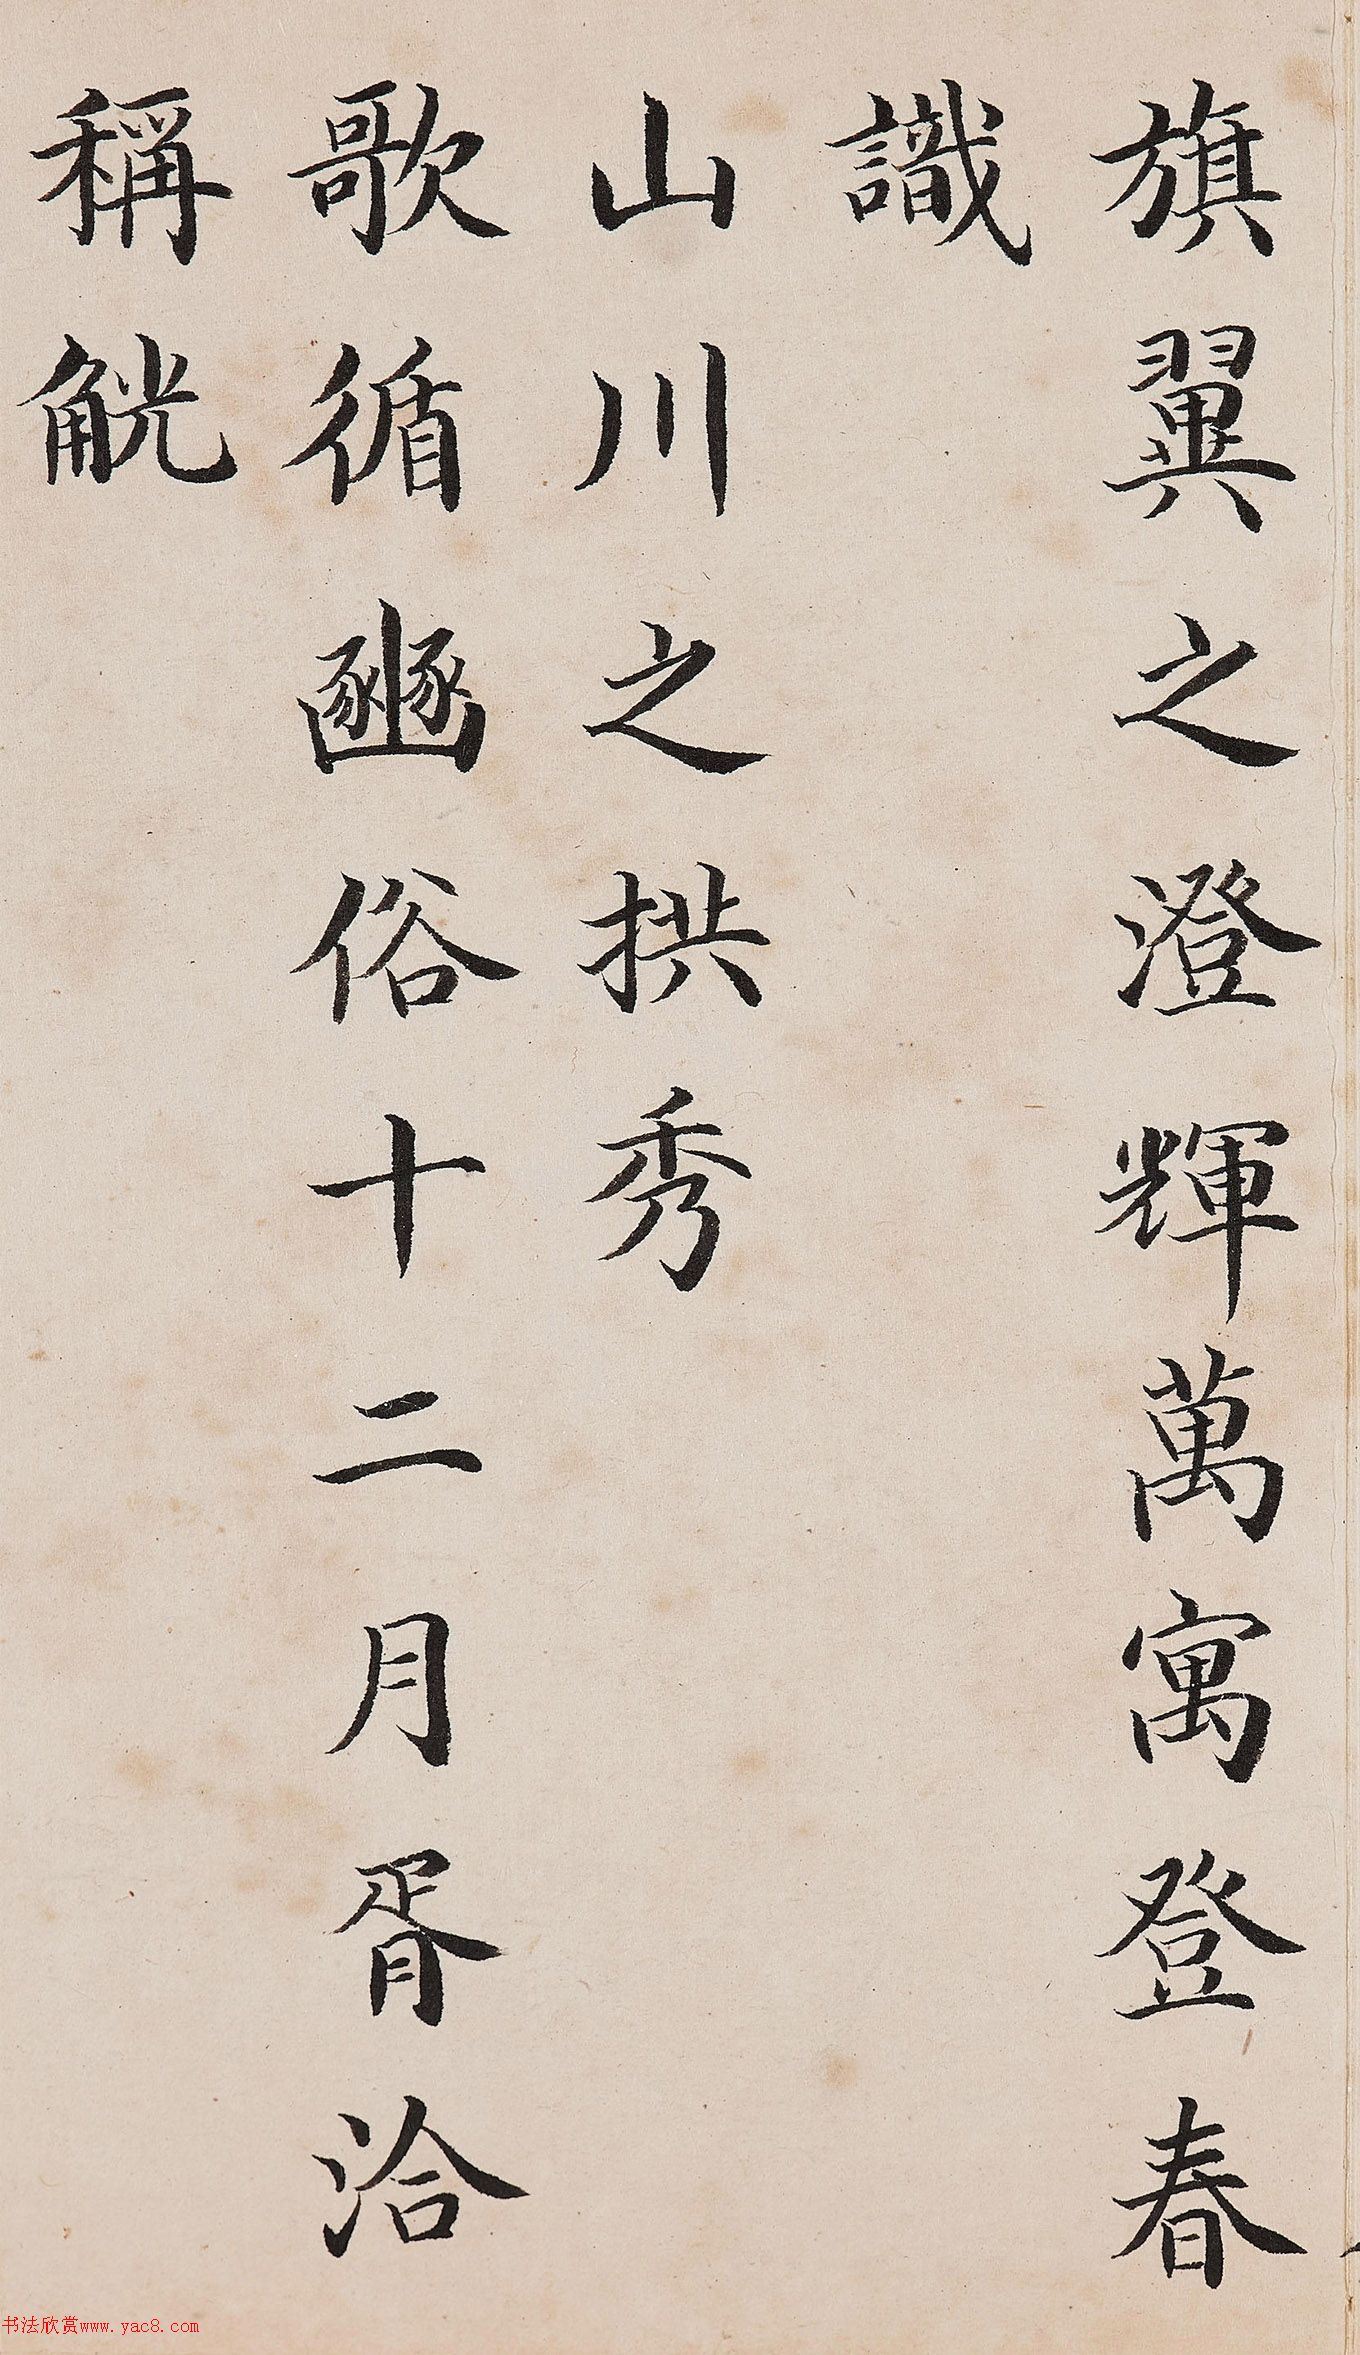 旗翼之澄輝萬寓登春
識
山川之拱秀
歌循豳俗十二月胥洽
稱觥
书法欣赏www.yac8.com